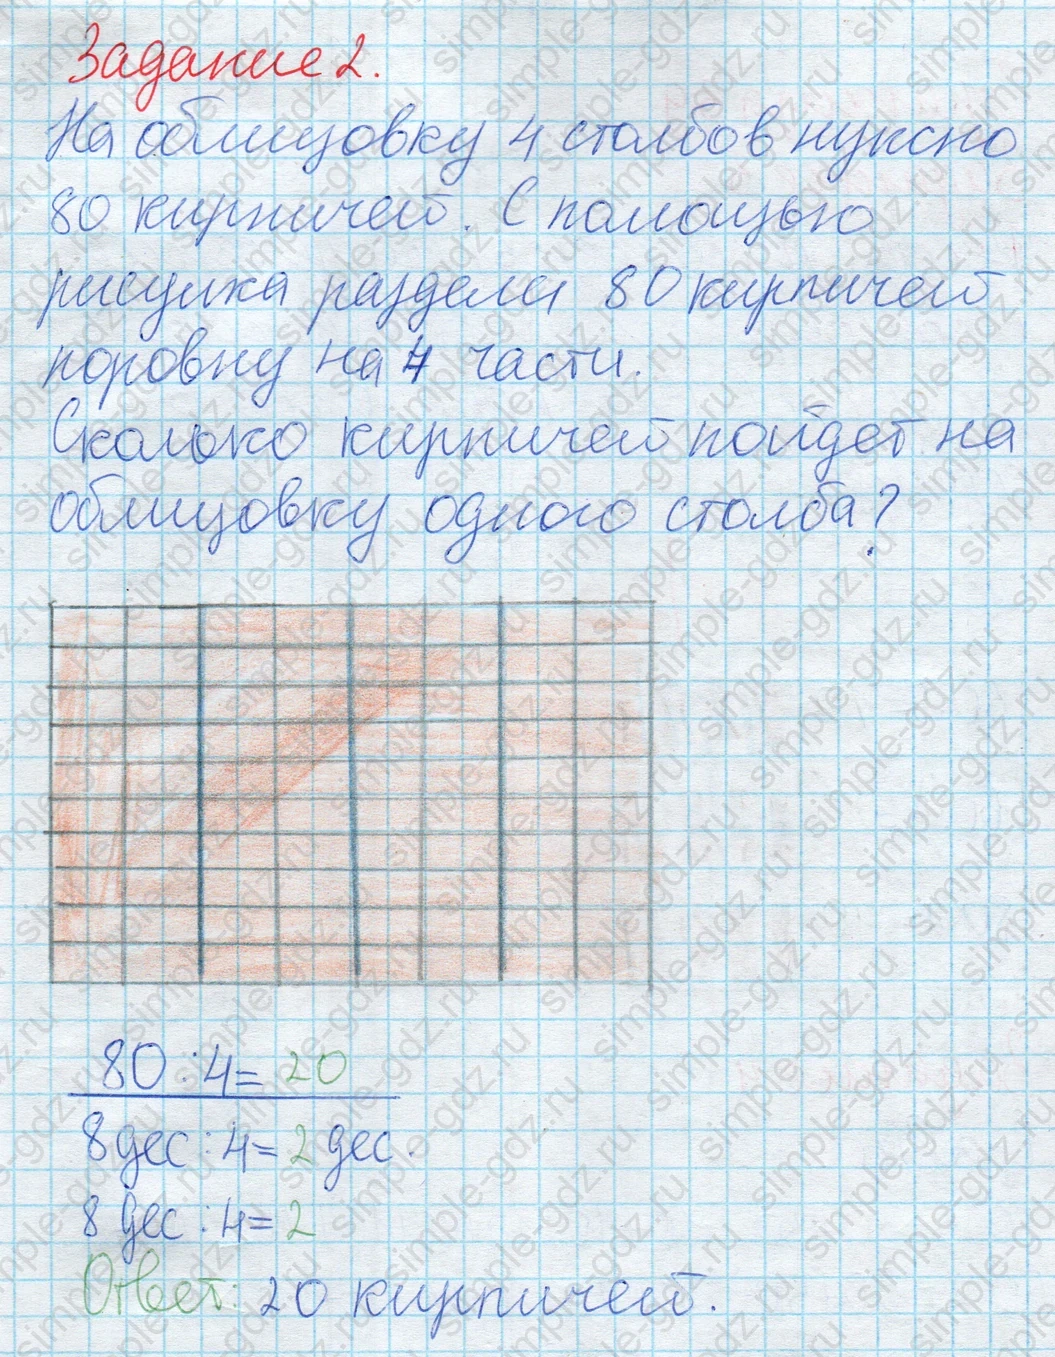 Задание 2.
На облицовку 4 столбов нужно
80 кирпичей. С помощью
рисунка раздели 80 кирпичей
поровну на 4 части.
Сколько кирпичей пойдет на
облицовку одного столба?
80 : 4 = 20
8 дес : 4 = 2 дес.
8 дес : 4 = 2
Ответ: 20 кирпичей.
simple-gdz.ru